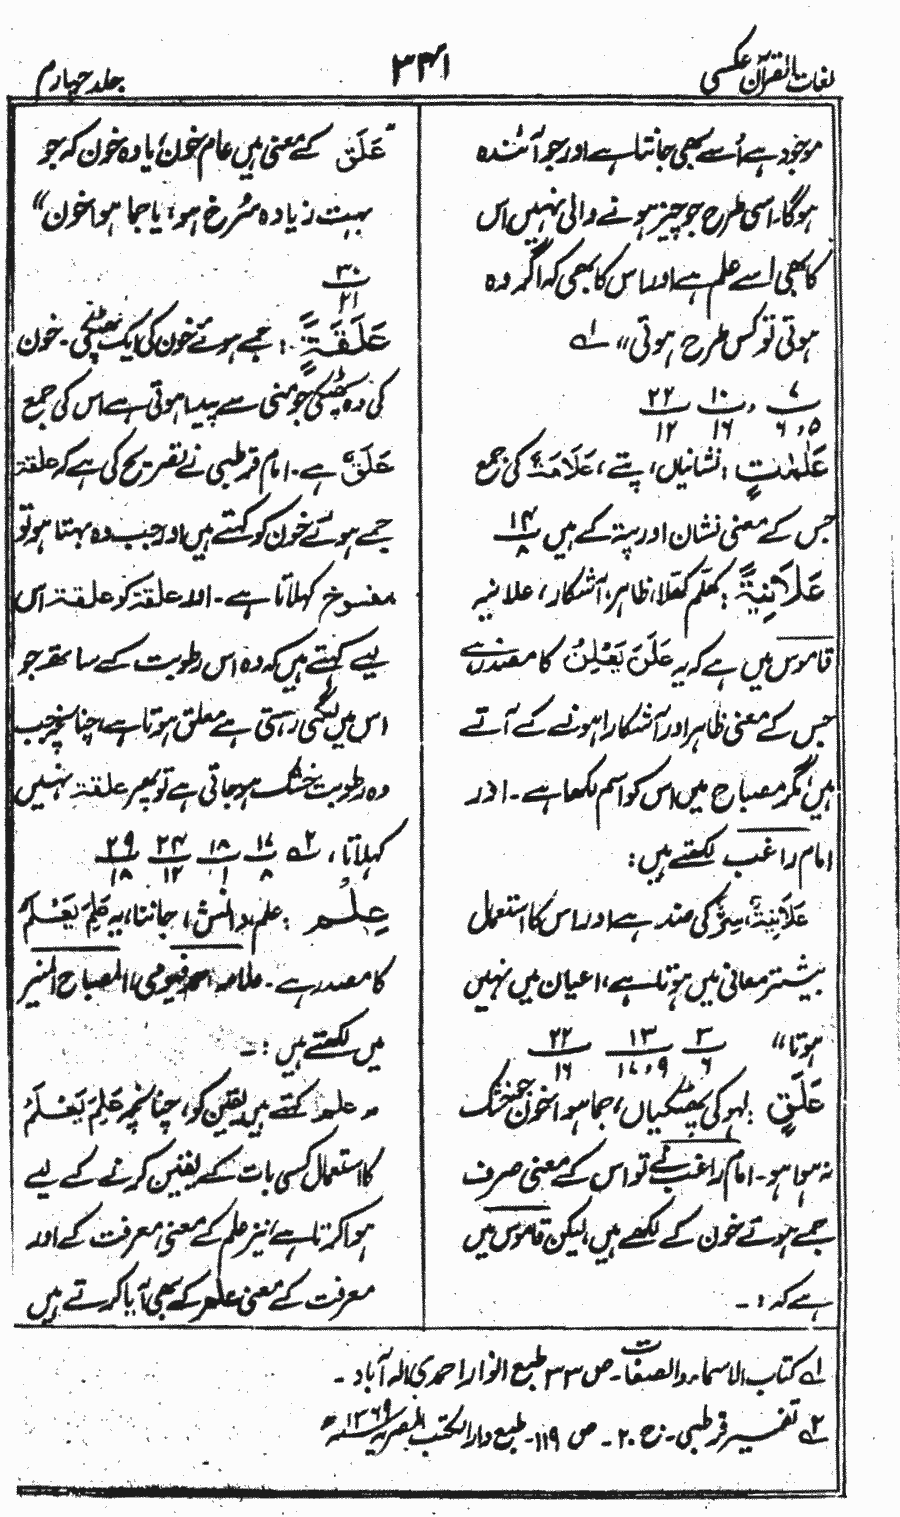 لغات القرآن عکسی
۳۴۱
جلد چہارم
موجود ہے اُسے بھی جانتا ہے اور جو آئندہ
ہوگا۔ اسی طرح جو چیز ہونے والی نہیں اس
کا بھی اسے علم ہے اور اس کا بھی کہ اگر وہ
ہوتی تو کس طرح ہوتی" لے
۷ ۱۰ ۲۲
۵، ۶ ۱۶ ۱۲
عَلٰمٰتٍ: نشانیاں، پتے، عَلَامَۃٌ کی جمع
جس کے معنی نشان اور پتہ کے ہیں ۱۴
۸
عَلَانِیَۃً: کھلم کھلا، ظاہر، آشکار، علانیہ
قاموس میں ہے کہ یہ عَلَنَ یَعْلِنُ کا مصدر ہے
جس کے معنی ظاہر اور آشکارا ہونے کے آتے
ہیں، مگر مصباح میں اس کو اسم لکھا ہے۔ اور
امام راغب لکھتے ہیں:
عَلَانِیَۃٌ، سِرٌّ کی ضد ہے اور اس کا استعمال
بیشتر معانی میں ہوتا ہے، اعیان میں نہیں
ہوتا" ۳ ۱۳ ۲۲
۶ ۱۷، ۹ ۱۶
عَلَقٍ: لہو کی پھٹکیاں، جما ہوا خون جو خشک
نہ ہوا ہو۔ امام راغب نے تو اس کے معنی صرف
جمے ہوئے خون کے لکھے ہیں، لیکن قاموس میں
ہے کہ :۔
"عَلَق کے معنی ہیں عام خون، یا وہ خون کہ جو
بہت زیادہ سُرخ ہو، یا جما ہوا خون"
۳۰
۲۱
عَلَقَۃً: جمے ہوئے خون کی ایک پھٹکی۔ خون
کی وہ پھٹکی جو منی سے پیدا ہوتی ہے اس کی جمع
عَلَقٌ ہے۔ امام قرطبی نے تصریح کی ہے کہ علقۃ
جمے ہوئے خون کو کہتے ہیں اور جب وہ بہتا ہو تو
مفسوخ کہلاتا ہے۔ اور علقۃ کو علقۃ اس
لیے کہتے ہیں کہ وہ اس رطوبت کے ساتھ جو
اس میں لگی رہتی ہے معلق ہوتا ہے، چنانچہ جب
وہ رطوبت خشک ہو جاتی ہے تو پھر علقۃ نہیں
کہلاتا، ۲ے ۱۷ ۱۸ ۲۴ ۲۹
۸ ۱ ۱۲ ۱۸
عِلْم: علم، دانش، جاننا، یہ عَلِمَ یَعْلَمُ
کا مصدر ہے۔ علامہ احمد فیومی، المصباح المنیر
میں لکھتے ہیں :۔
" علم کہتے ہیں یقین کو، چنانچہ عَلِمَ یَعْلَمُ
کا استعمال کسی بات کے یقین کرنے کے لیے
ہوا کرتا ہے، نیز علم کے معنی معرفت کے اور
معرفت کے معنی علم کے بھی آیا کرتے ہیں
۱ے کتاب الاسماء والصفات۔ ص ۳۳ طبع انوار احمدی الہ آباد۔
۲ے تفسیر قرطبی۔ ج ۲۰۔ ص ۱۱۹۔ طبع دار الکتب المصریہ ۱۳۶۹ھ